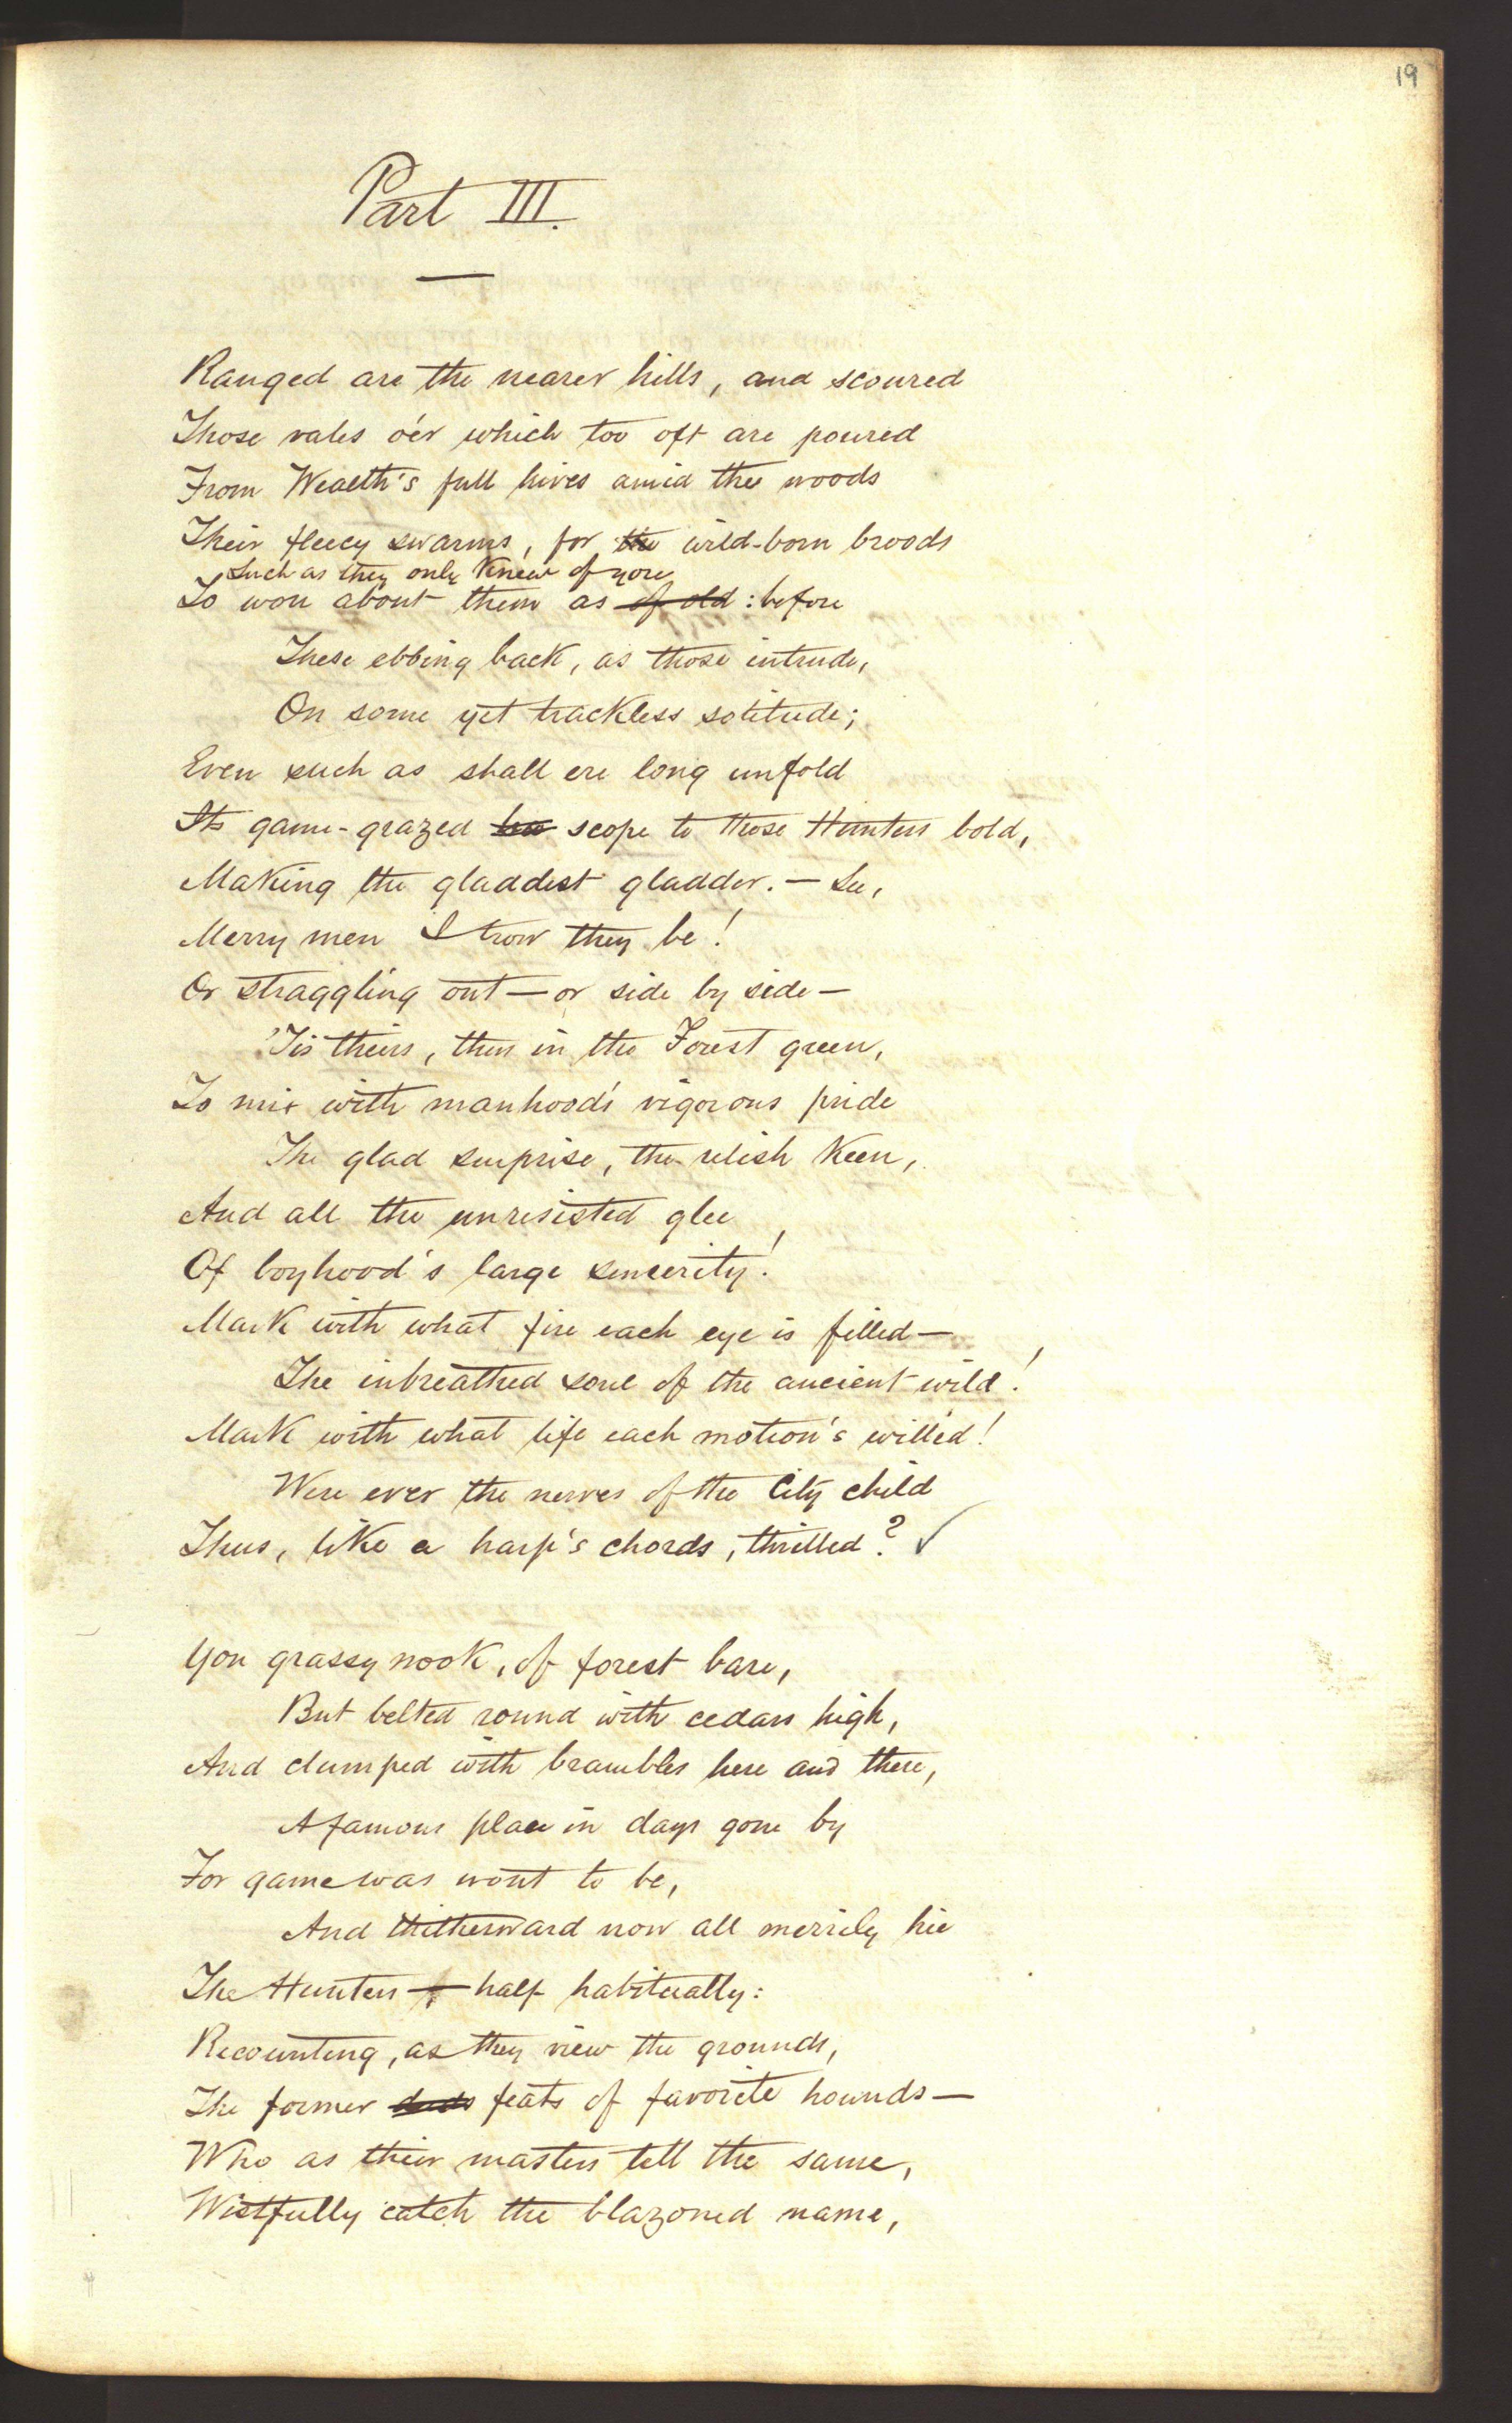 19
Part III.
Ranged are the nearer hills, and scoured
Those vales o'er which too oft are poured
From Wealth's full hives amid the woods
Their fleecy swarms, for the wild-born broods
Such as they only knew of yore
To won about them as of old : before
These ebbing back, as those intrude,
On some yet trackless solitude;
Even such as shall ere long unfold
Its game-grazed scope to those Hunters bold,
Making the gladdest gladder. — See,
Merry men I trow they be!
Or straggling out — or side by side —
'Tis theirs, thus in the Forest green,
To mix with manhood's vigorous pride
The glad surprise, the relish keen,
And all the unresisted glee
Of boyhood's large sincerity!
Mark with what fire each eye is filled —
The inbreathed soul of the ancient wild!
Mark with what life each motion's willed!
Were ever the nerves of the City child
Thus, like a harp's chords, thrilled? ✓
Yon grassy nook, of forest bare,
But belted round with cedars high,
And clumped with brambles here and there,
A famous place in days gone by
For game was wont to be,
And thitherward now all merrily hie
The Hunters — half habitually:
Recounting, as they view the grounds,
The former deeds feats of favorite hounds —
Who as their masters tell the same,
Wistfully catch the blazoned name,